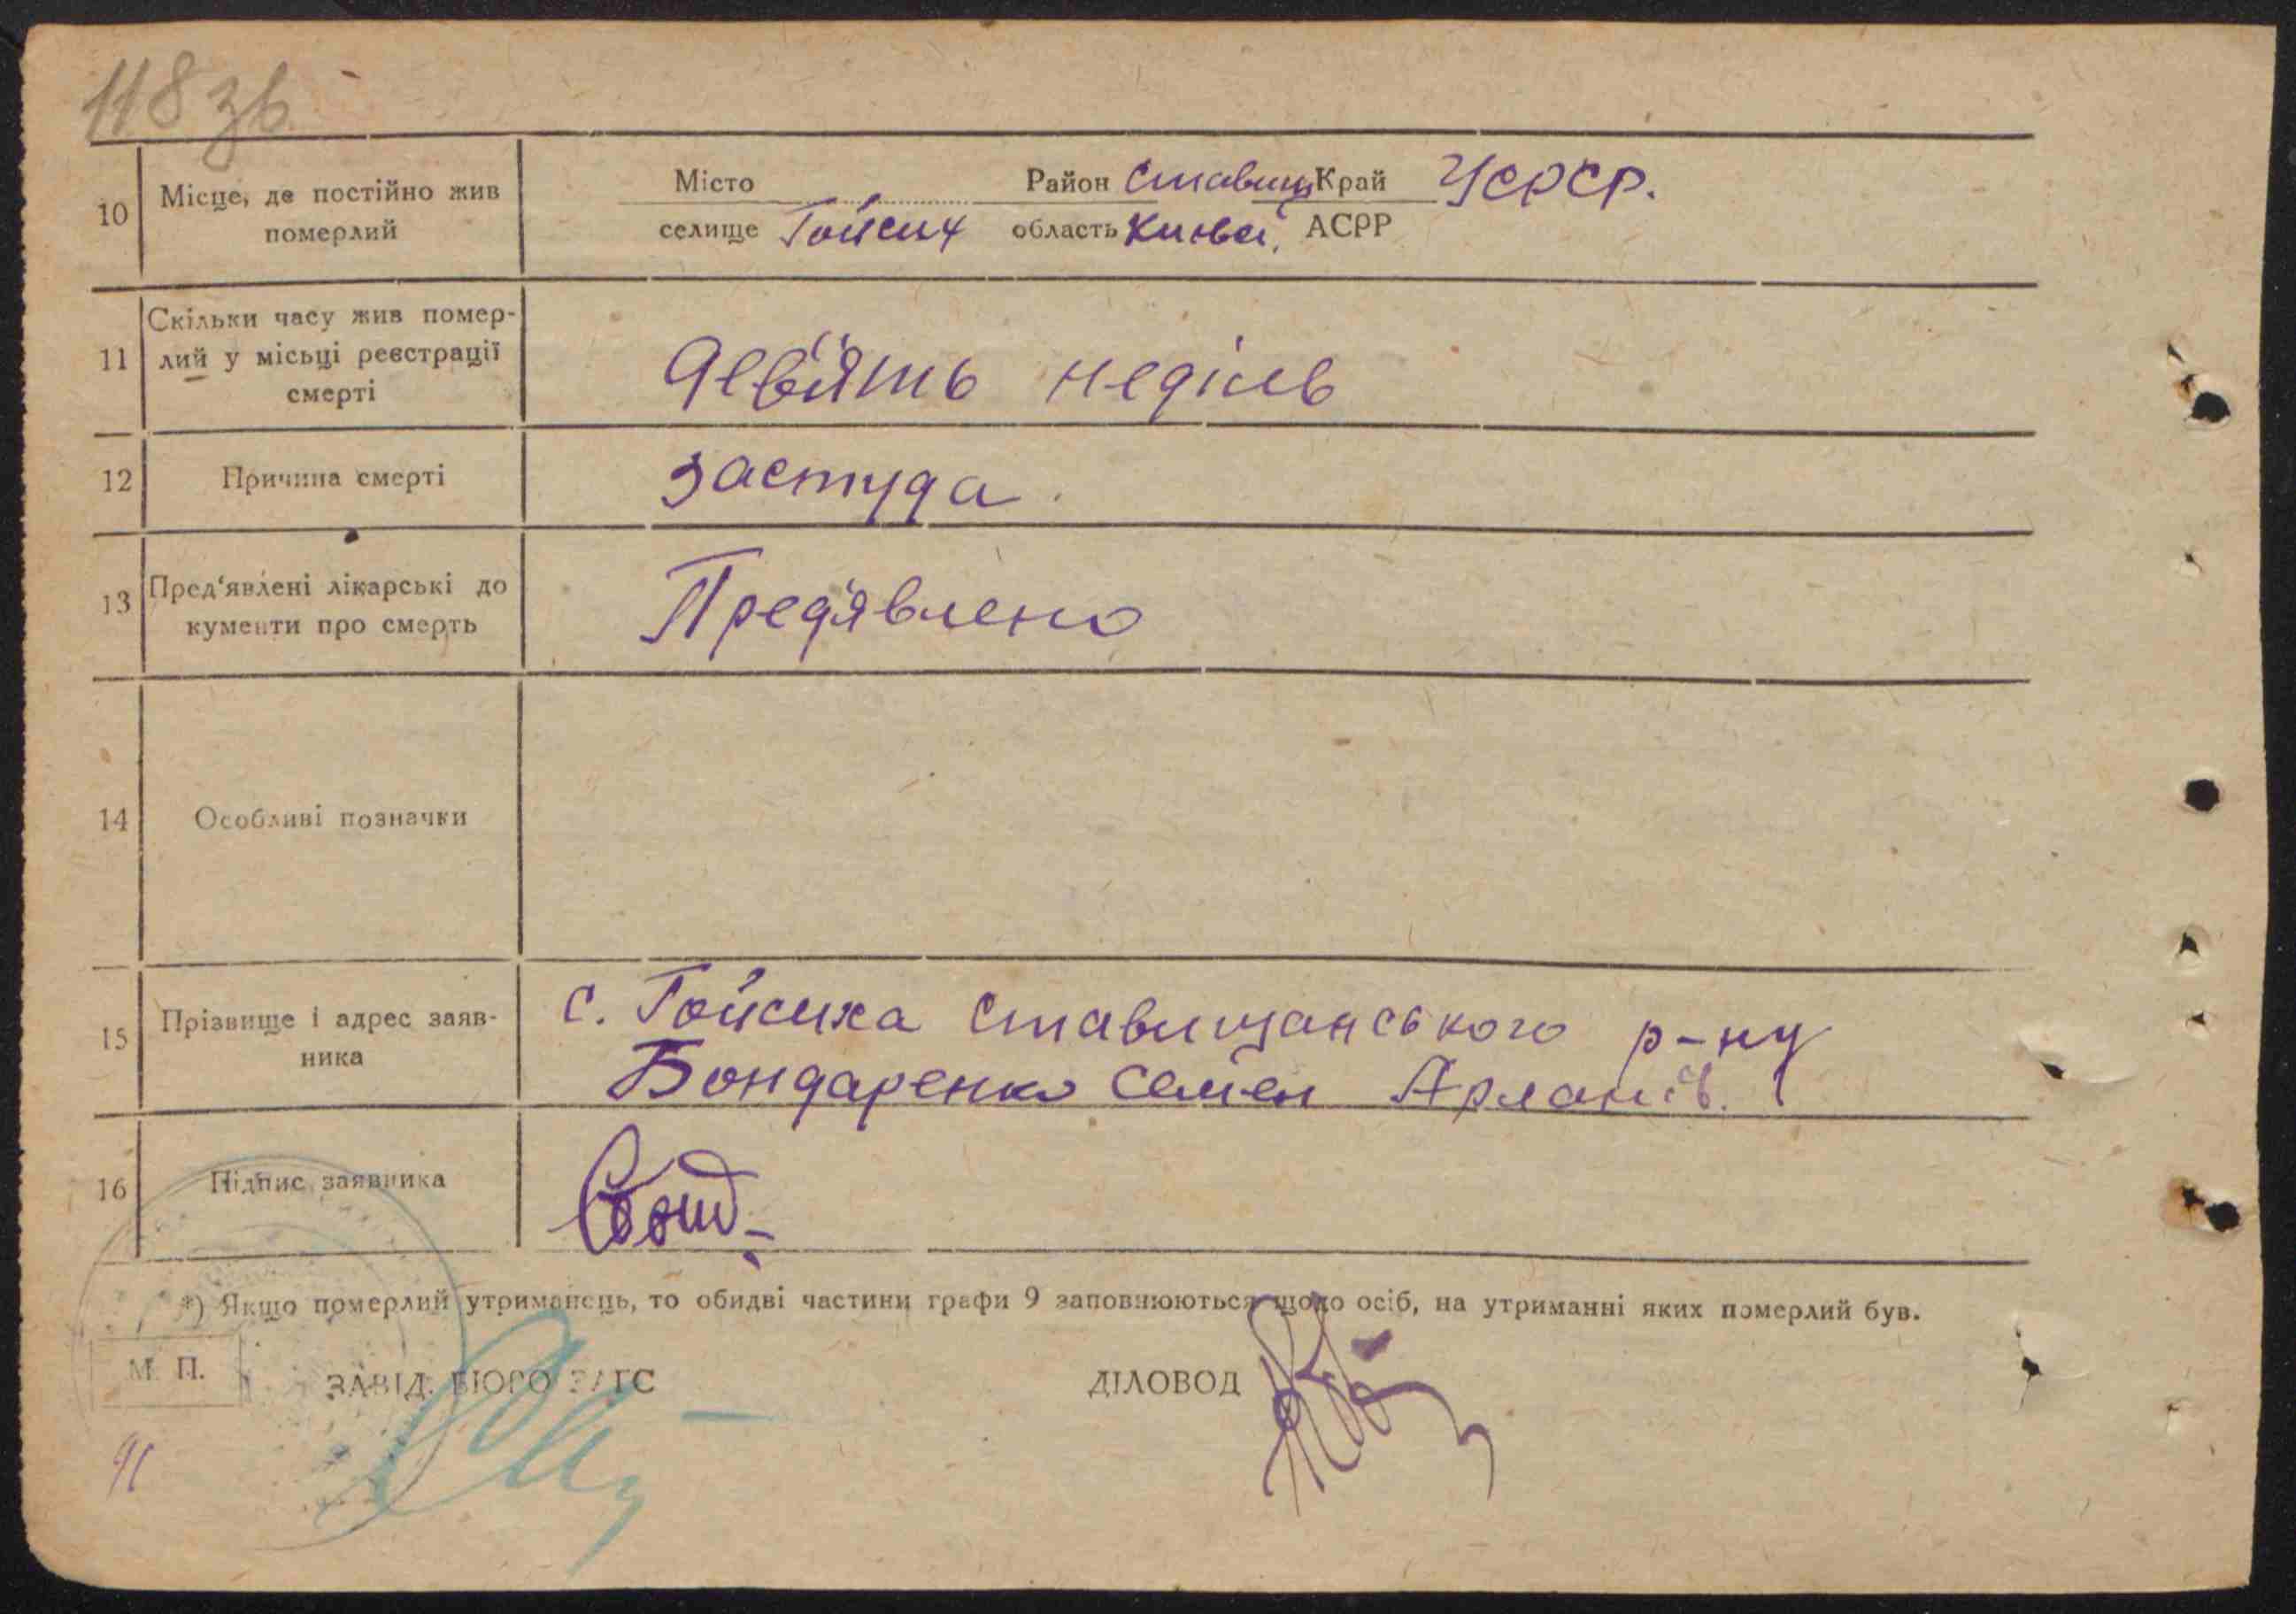 118 зв.
10 Місце, де постійно жив померлий
Місто Район Ставищ Край УСРСР.
селище Гойсих область Київсь. АСРР
11 Скільки часу жив помер-
лий у місьці реєстрації
смерті
Девйять неділь
12 Причина смерті застуда.
13 Пред'явлені лікарські до
кументи про смерть
Предявлено
14 Особливі позначки
15 Прізвище і адрес заяв-
ника
с. Гойсиха Ставищанського р-ну
Бондаренко Семен
16 Підпис заявника
*) Якщо померлий утриманець, то обидві частини графи 9 заповнюються щодо осіб, на утриманні яких померлий був.
М. П. ЗАВІД. БЮРО ЗАГС ДІЛОВОД